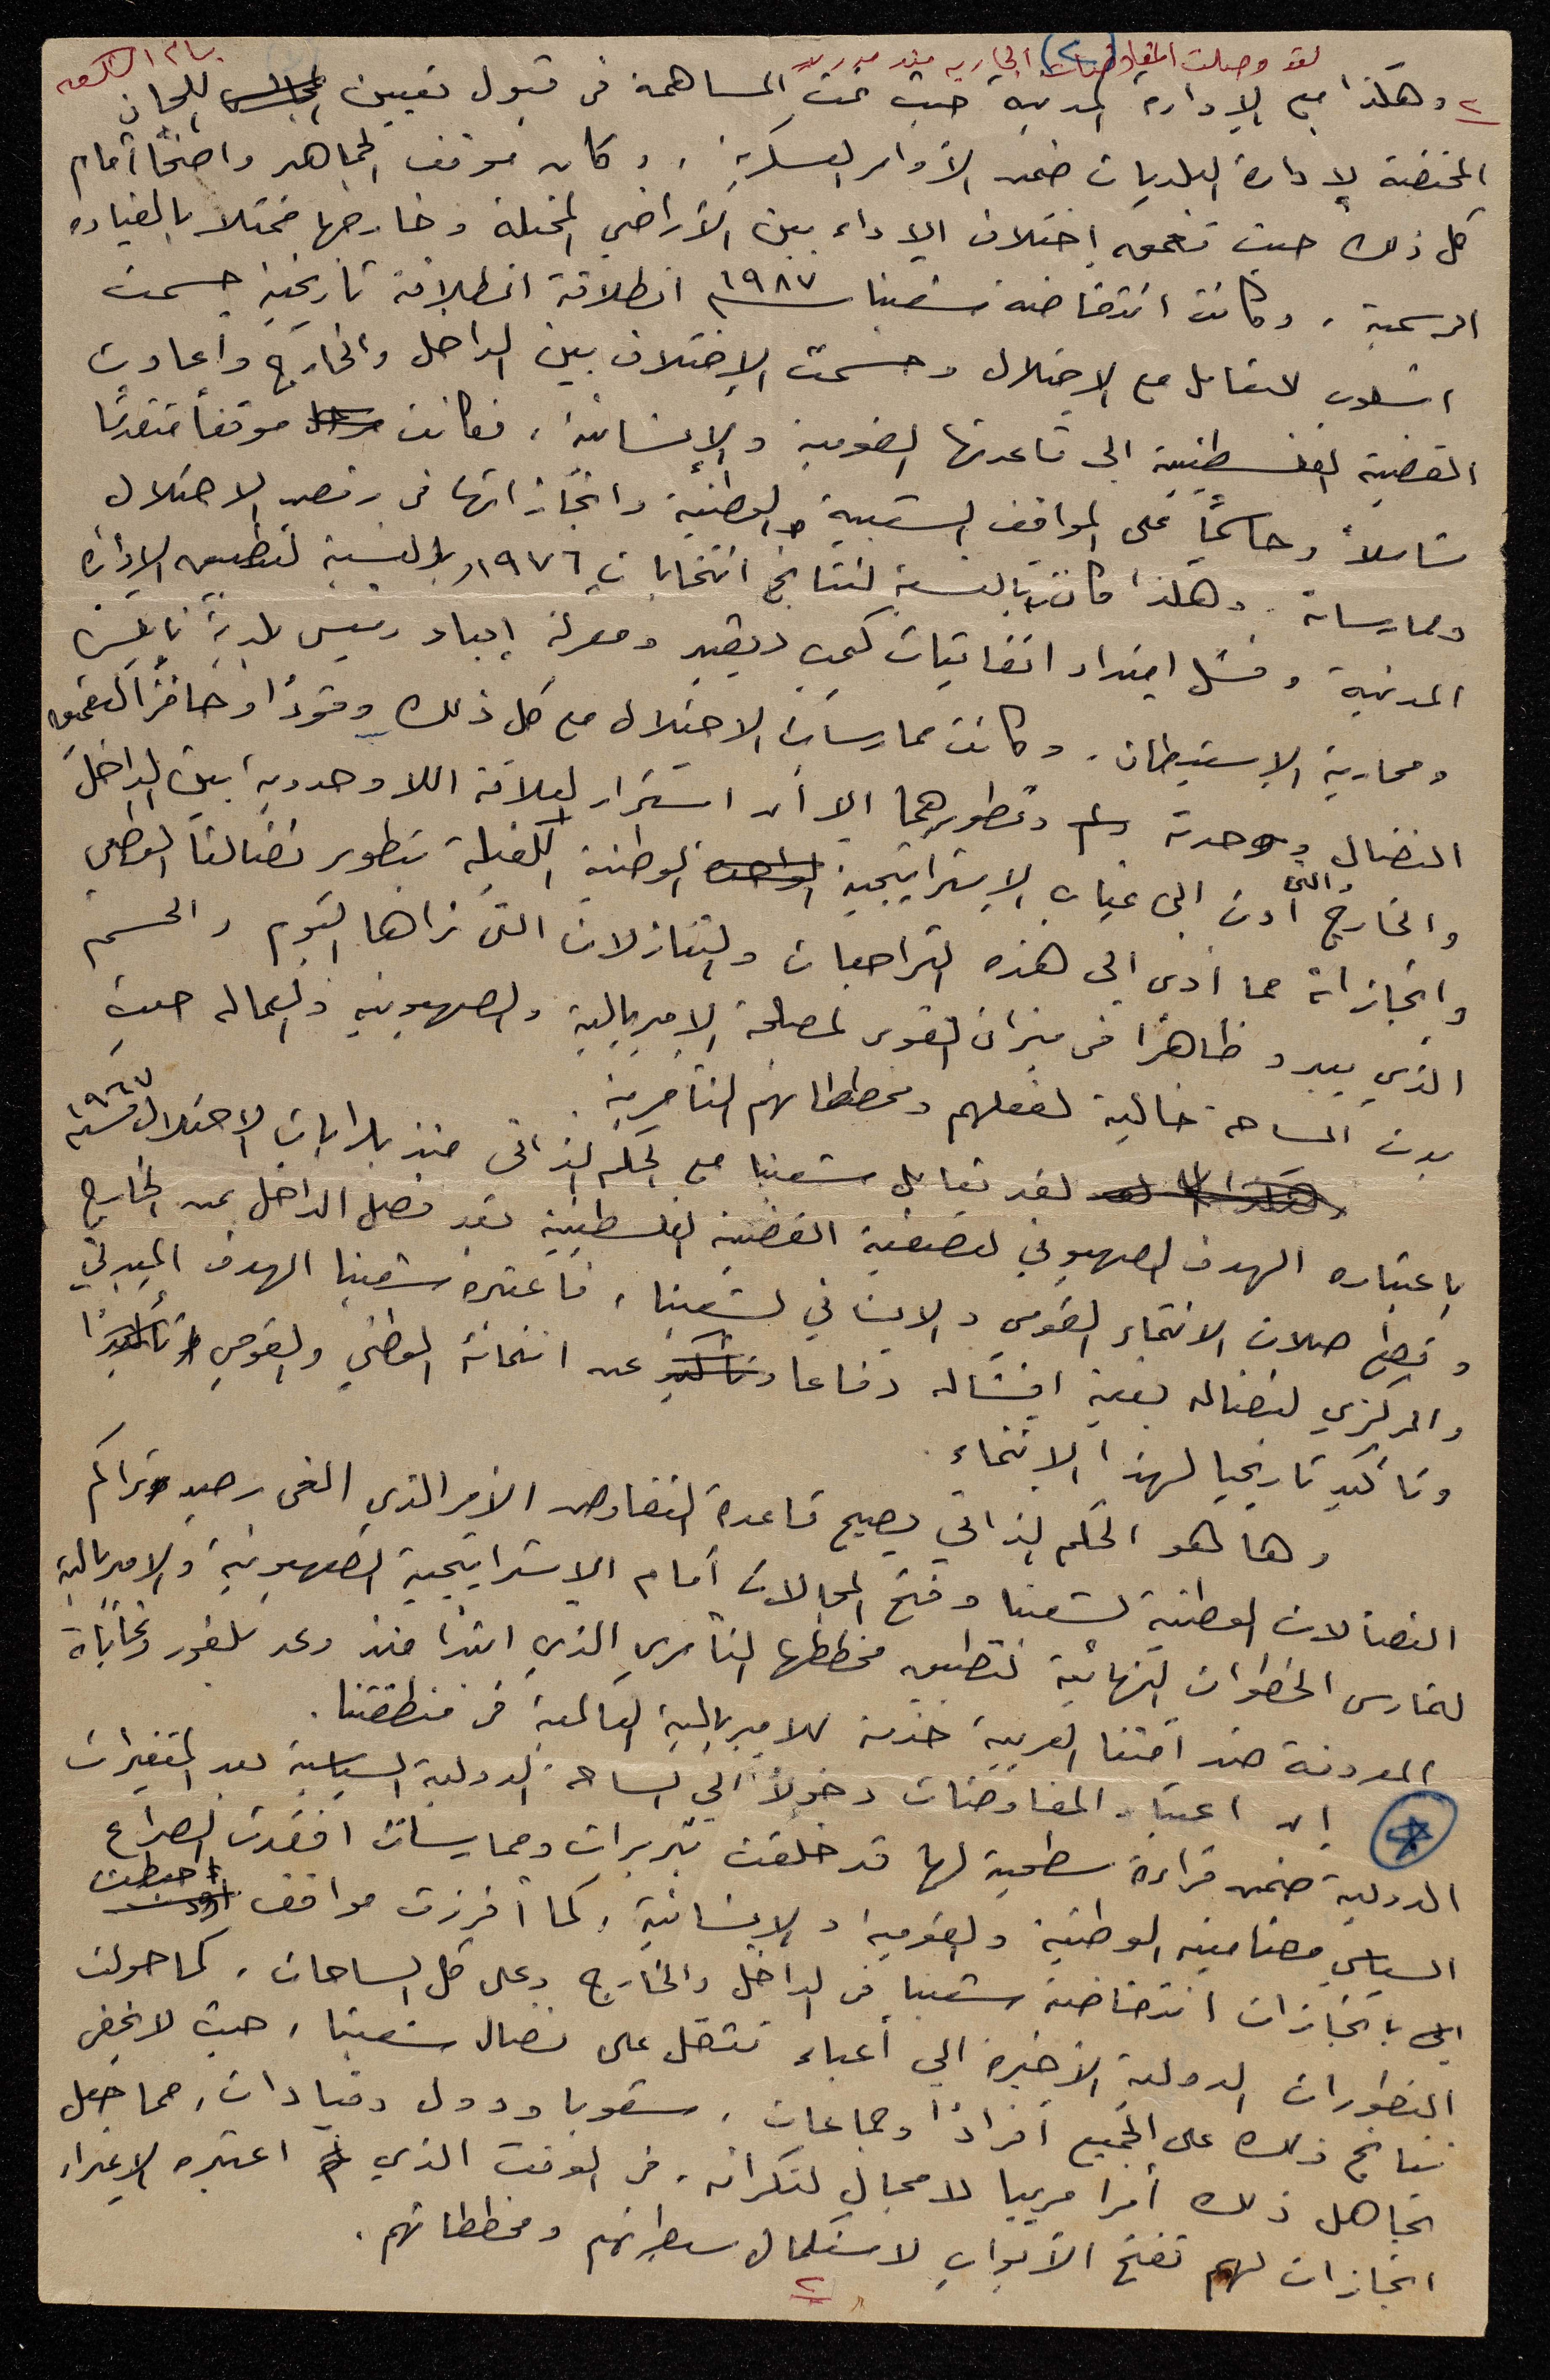 لقد وصلت المفاوضات الجارية منذ مدريد
٢ وهكذا مع الإدارة المدنية حيث تمت المساهمة في قبول تعيين المجالس للجان
المختصة لإدارة البلديات ضمن الأوامر العسكرية، وكان موقف الجماهير واضحًا أمام
كل ذلك حيث تعمق إختلاف الاداء بين الأراضي المحتلة وخارجها ممثلا بالقياده
الرسمية، وكانت انتفاضة شعبنا ١٩٨٧م انطلاقة انطلاقة تاريخية حسمت
اسلوب التعامل مع الإحتلال وحسمت الإختلاف بين الداخل والخارج وأعادت
القضية الفلسطينية الى قاعدتها القومية والإنسانية، فكانت موقفاً متقدمًا
شاملاً وحاسمًا على المواقف الشعبية والوطنية وانجازاتها في رفض الاحتلال
وممارساته. وهكذا كانت بالنسبة لنتائج انتخابات ١٩٧٦ وبالنسبة لتطبيق الإدارة
المدنية وفشل امتداد اتفاقيات كمب ديفيد ومعركة إبعاد رئيس بلدية نابلس
ومحاربة الإستيطان. وكانت ممارسات الاحتلال مع كل ذلك وقودًا وحافزًا لتعميق
النضال ووحدته وتطويرهما الا أن استمرار العلاقة اللاوحدوية بين الداخل
والخارج والتي أدت الى غياب الإستراتيجية الوطنية الكفيلة بتطوير نضالنا الوطني
وانجازاته مما أدى الى هذه التراجعات والتنازلات التي نراها اليوم، والحسم
الذي يبدو ظاهرًا في ميزان القوى لمصلحة الإمبريالية والصهيونية والعمالة حيث
بدت الساحة خالية لفعلهم ومخططاتهم التآمرية.
لقد تعامل شعبنا مع الحكم الذاتي منذ بدايات الإحتلال ١٩٦٧م
باعتباره الهدف الصهيوني لتصفية القضية الفلسطينية بعد فصل الداخل عن الخارج
وقطع صلات الانتماء القومي والإنساني لشعبنا، فاعتبره شعبنا الهدف المبدئي
والمركزي لنضاله بغية افشاله دفاعا عن انتمائه الوطني والقومي
وتأكيد تاريخيا لهذا الإنتماء.
وها هو الحكم الذاتي يصبح قاعدة التفاوض الأمر الذي الغى رصيد تراكم
النضالات الوطنية لشعبنا وفتح المجالات أمام الإستراتيجية الصهيونية والامبريالية
لتمارس الخطوات النهائية لتطبيق مخططها التآمري الذي ابتدأ منذ وعد بلفور
المعروفة ضد أمتنا العربية خدمة للامبريالية العالمية في منطقتنا.
إن اعتبار المفاوضات دخولاً الى الساحة الدولية السياسية بعد المتغيرات
الدولية ضمن قراءة سطحية لها قد خلقت تبريرات وممارسات افقدت الصراع
السياسي مضامينه الوطنية والقومية والإنسانية، كما أفرزت مواقف احبطت
انجازات انتفاضة شعبنا في الداخل والخارج وعلى كل الساحات، كما حولت
التطورات الدولية الأخيرة الى أعباء تثقل على نضال شعبنا، حيث لا تخفى
نتائج ذلك على الجميع أفرادًا وجماعات، شعوبا ودول وقيادات، مما جعل
تجاهل ذلك أمرا مريبا لا مجال لنكرانه، في الوقت الذي اعتبره الاعداء
انجازات لهم تفتح الأبواب لاستكمال سيطرتهم ومخططاتهم.
٢